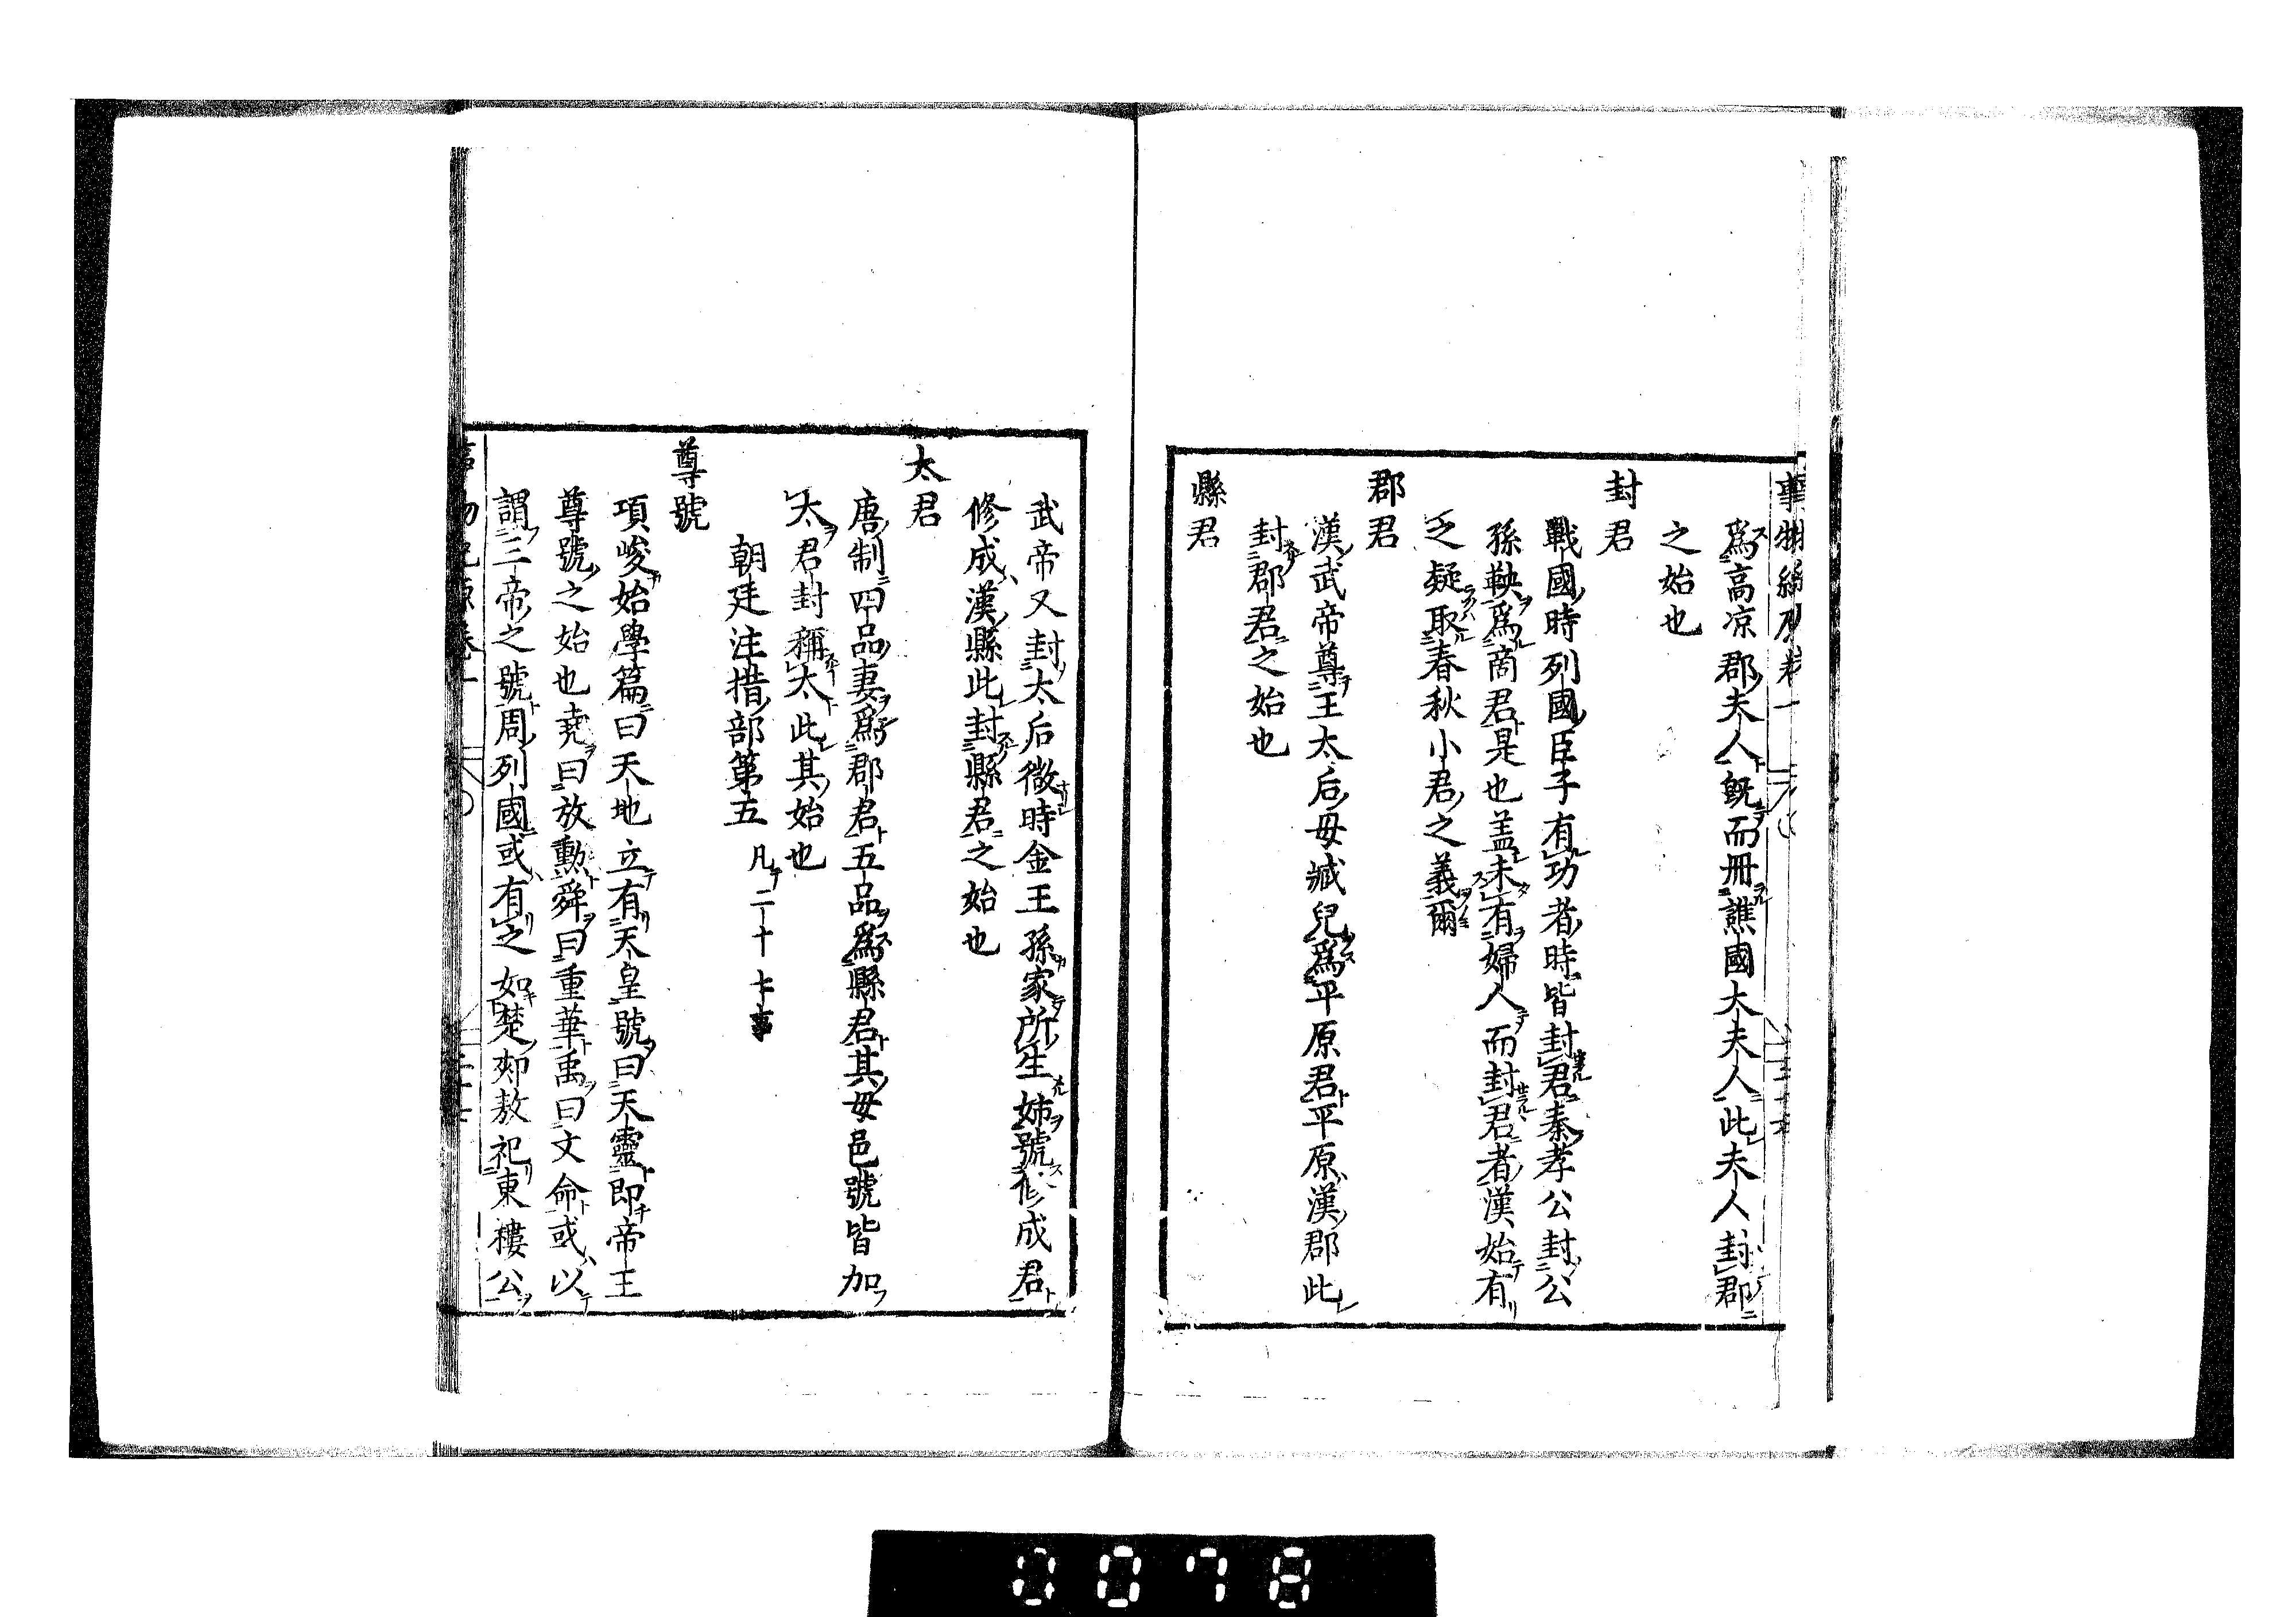 爲高凉郡夫人既而冊譙國太夫人此夫人封郡
之始也
封君
戰國時列國臣子有功者時皆封君秦孝公封公
孫鞅爲商君是也盖未有婦人而封君者漢始有
之疑取春秋小君之義爾
郡君
漢武帝尊王太后母臧兒爲平原君平原漢郡此
封郡君之始也
縣君
武帝又封太后微時金王孫家所生姉號修成君
修成漢縣此封縣君之始也
太君
唐制四品妻爲郡君五品爲縣君其母邑號皆加
太君封稱太此其始也
朝廷注措部第五 凡二十七事
尊號
項峻始學篇曰天地立有天皇號曰天靈即帝王
尊號之始也堯曰放勲舜曰重華禹曰文命或以
謂三帝之號周列國或有之如楚郟敖祀東樓公
0078